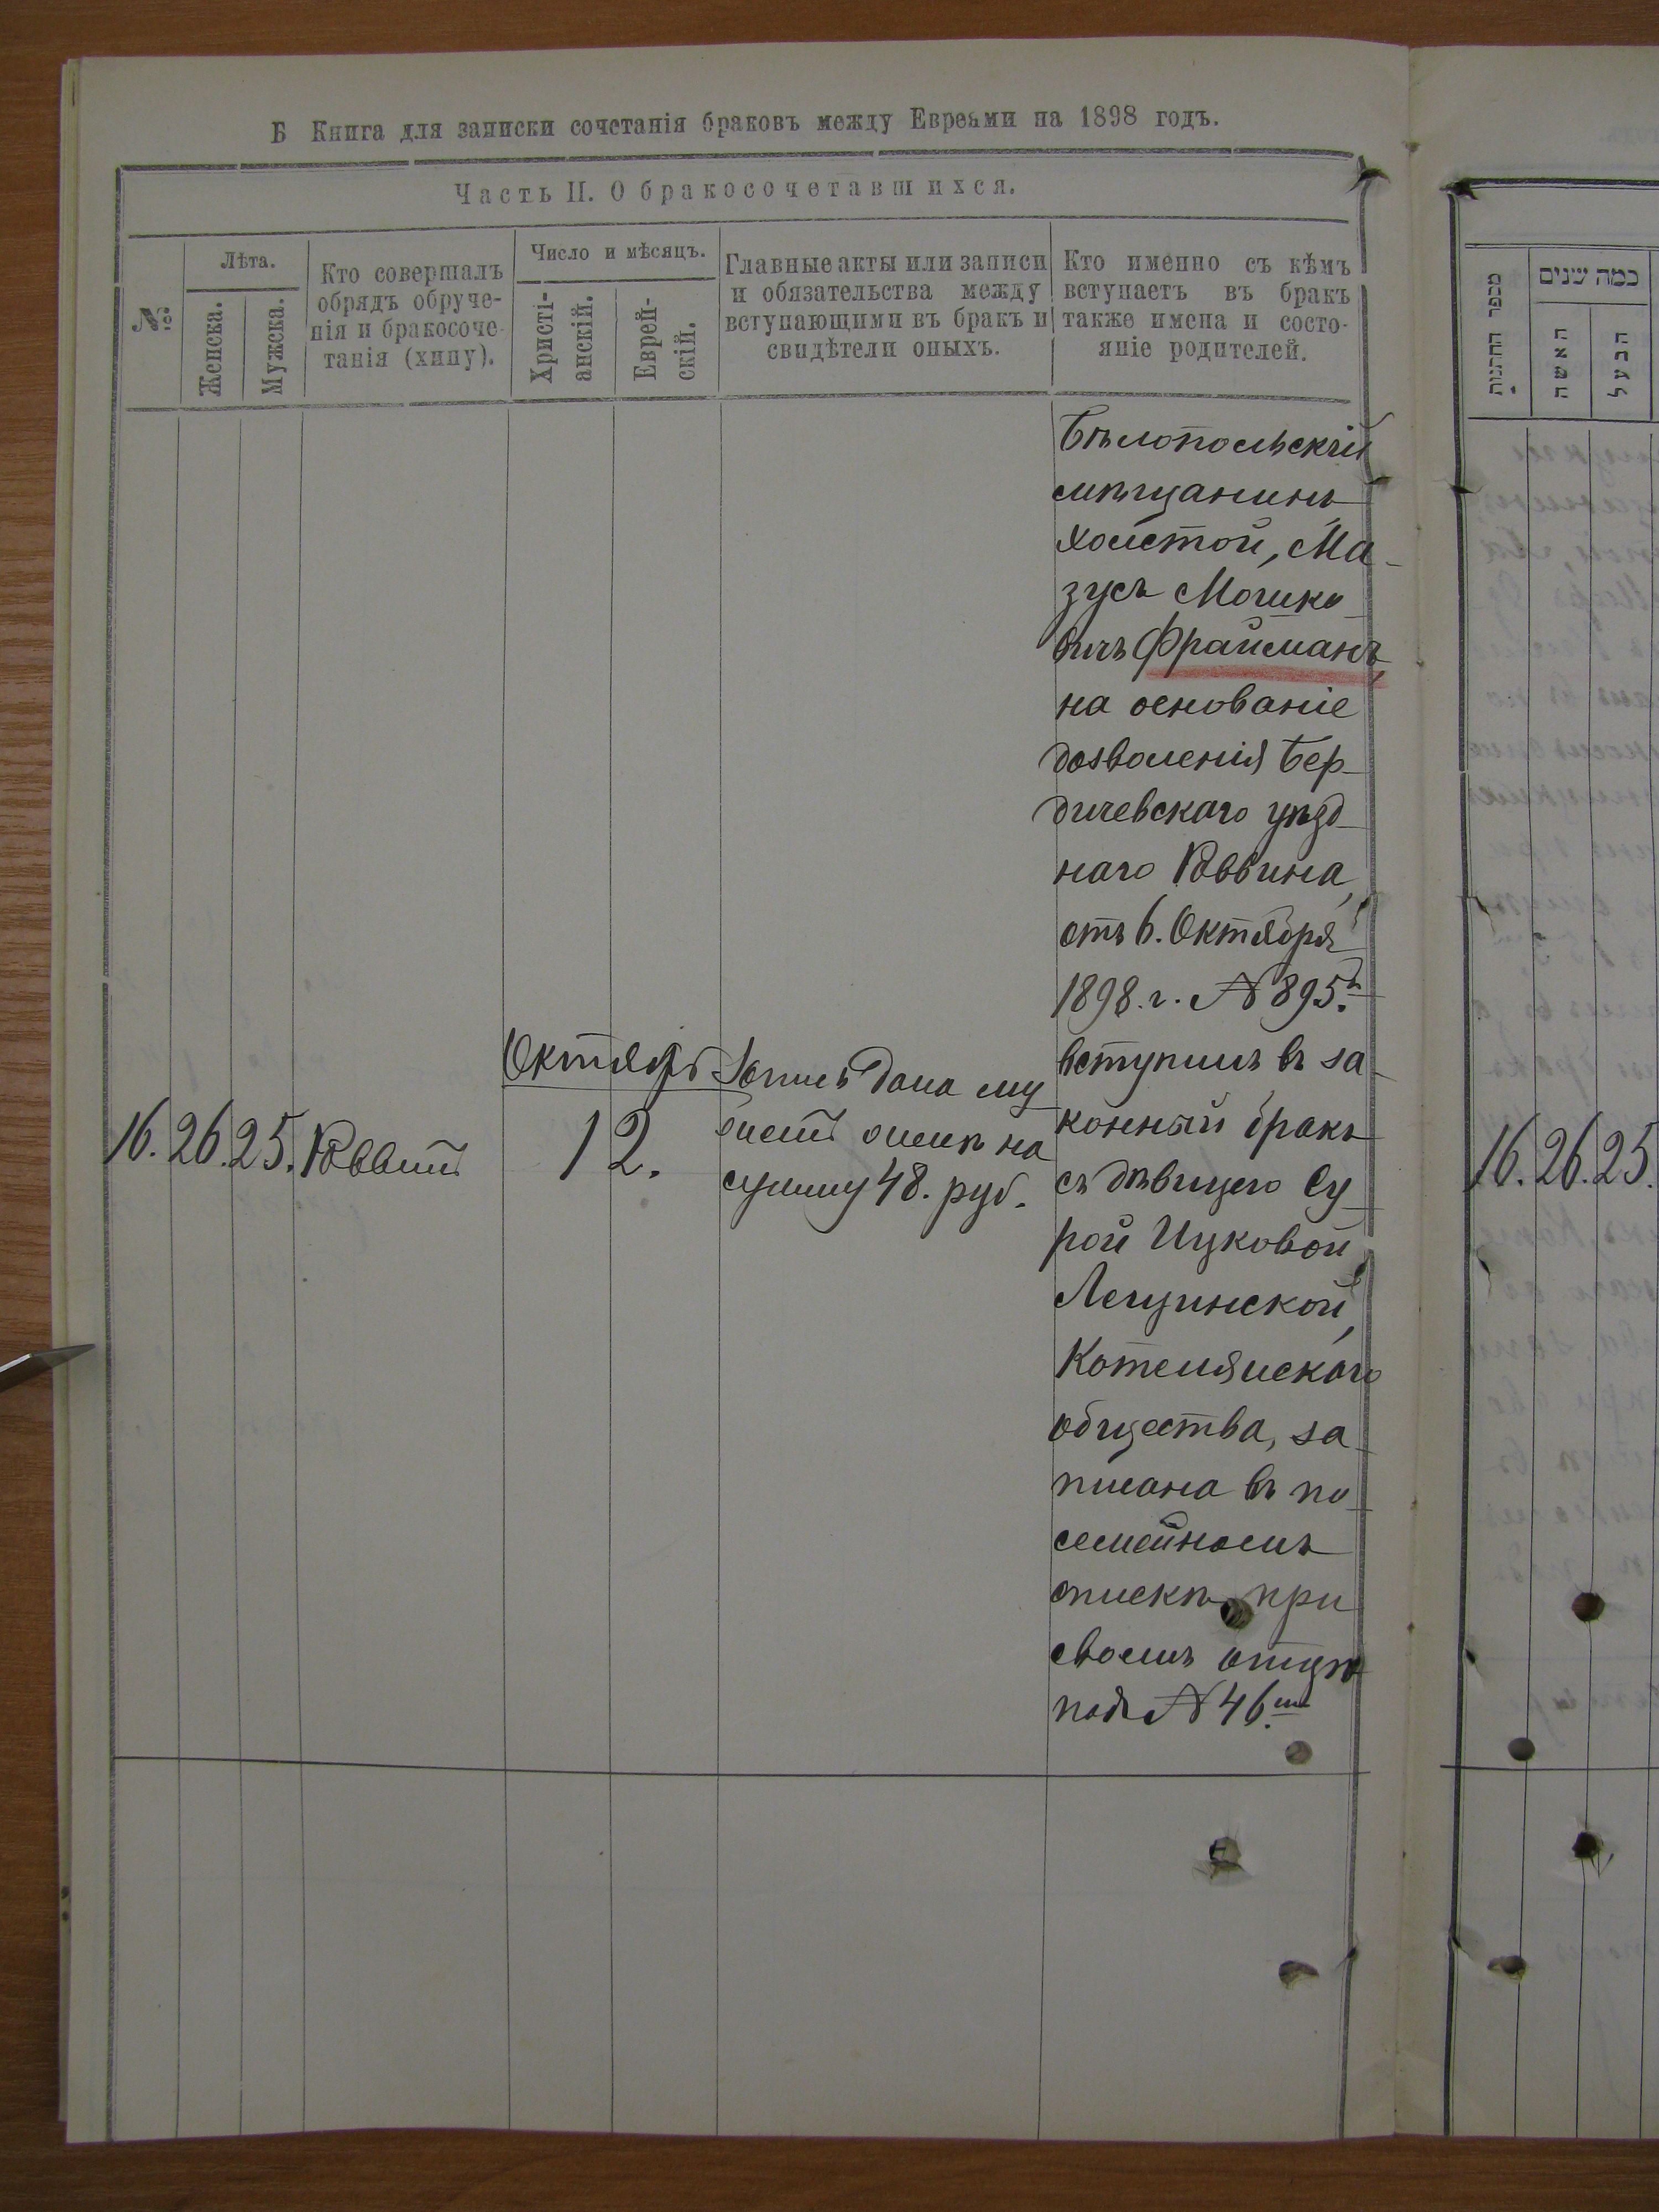 Б Книга для записки сочетанія браковъ между Евреями на 1898 годъ.
Часть II. О бракосочетавшихся.
№
Лѣта.
Женска.
Мужска.
Кто совершалъ
обрядъ обруче-
нія и бракосоче-
танія (хипу).
Число и мѣсяцъ.
Христі-
анскій.
Еврей-
скій.
Главные акты или записи
и обязательства между
вступающими въ бракъ и
свидѣтели оныхъ.
Кто именно съ кѣмъ
вступаетъ въ бракъ
также имена и состо-
яніе родителей.
16. 26. 25. Раввинъ
Октябрь
12.
Запись дана му
сумму 48. руб.
Бѣлопольскій
мѣщанинъ
холостой, Ма-
зусъ Мошко-
вичъ Фрайманъ,
на основаніе
дозволенія Бер-
дичевскаго уѣзд-
наго Раввина,
отъ 6. Октября
1898. г. № 895.
вступилъ въ за-
конный бракъ
съ дѣвицею Су-
рой Ицковой
Лещинской,
Котелянскаго
общества, за-
писана въ по-
семейномъ
спискѣ при
своемъ отцѣ
подъ № 46.
מספר החתנות
כמה שנים
האשה
הבעל
16. 26. 25.